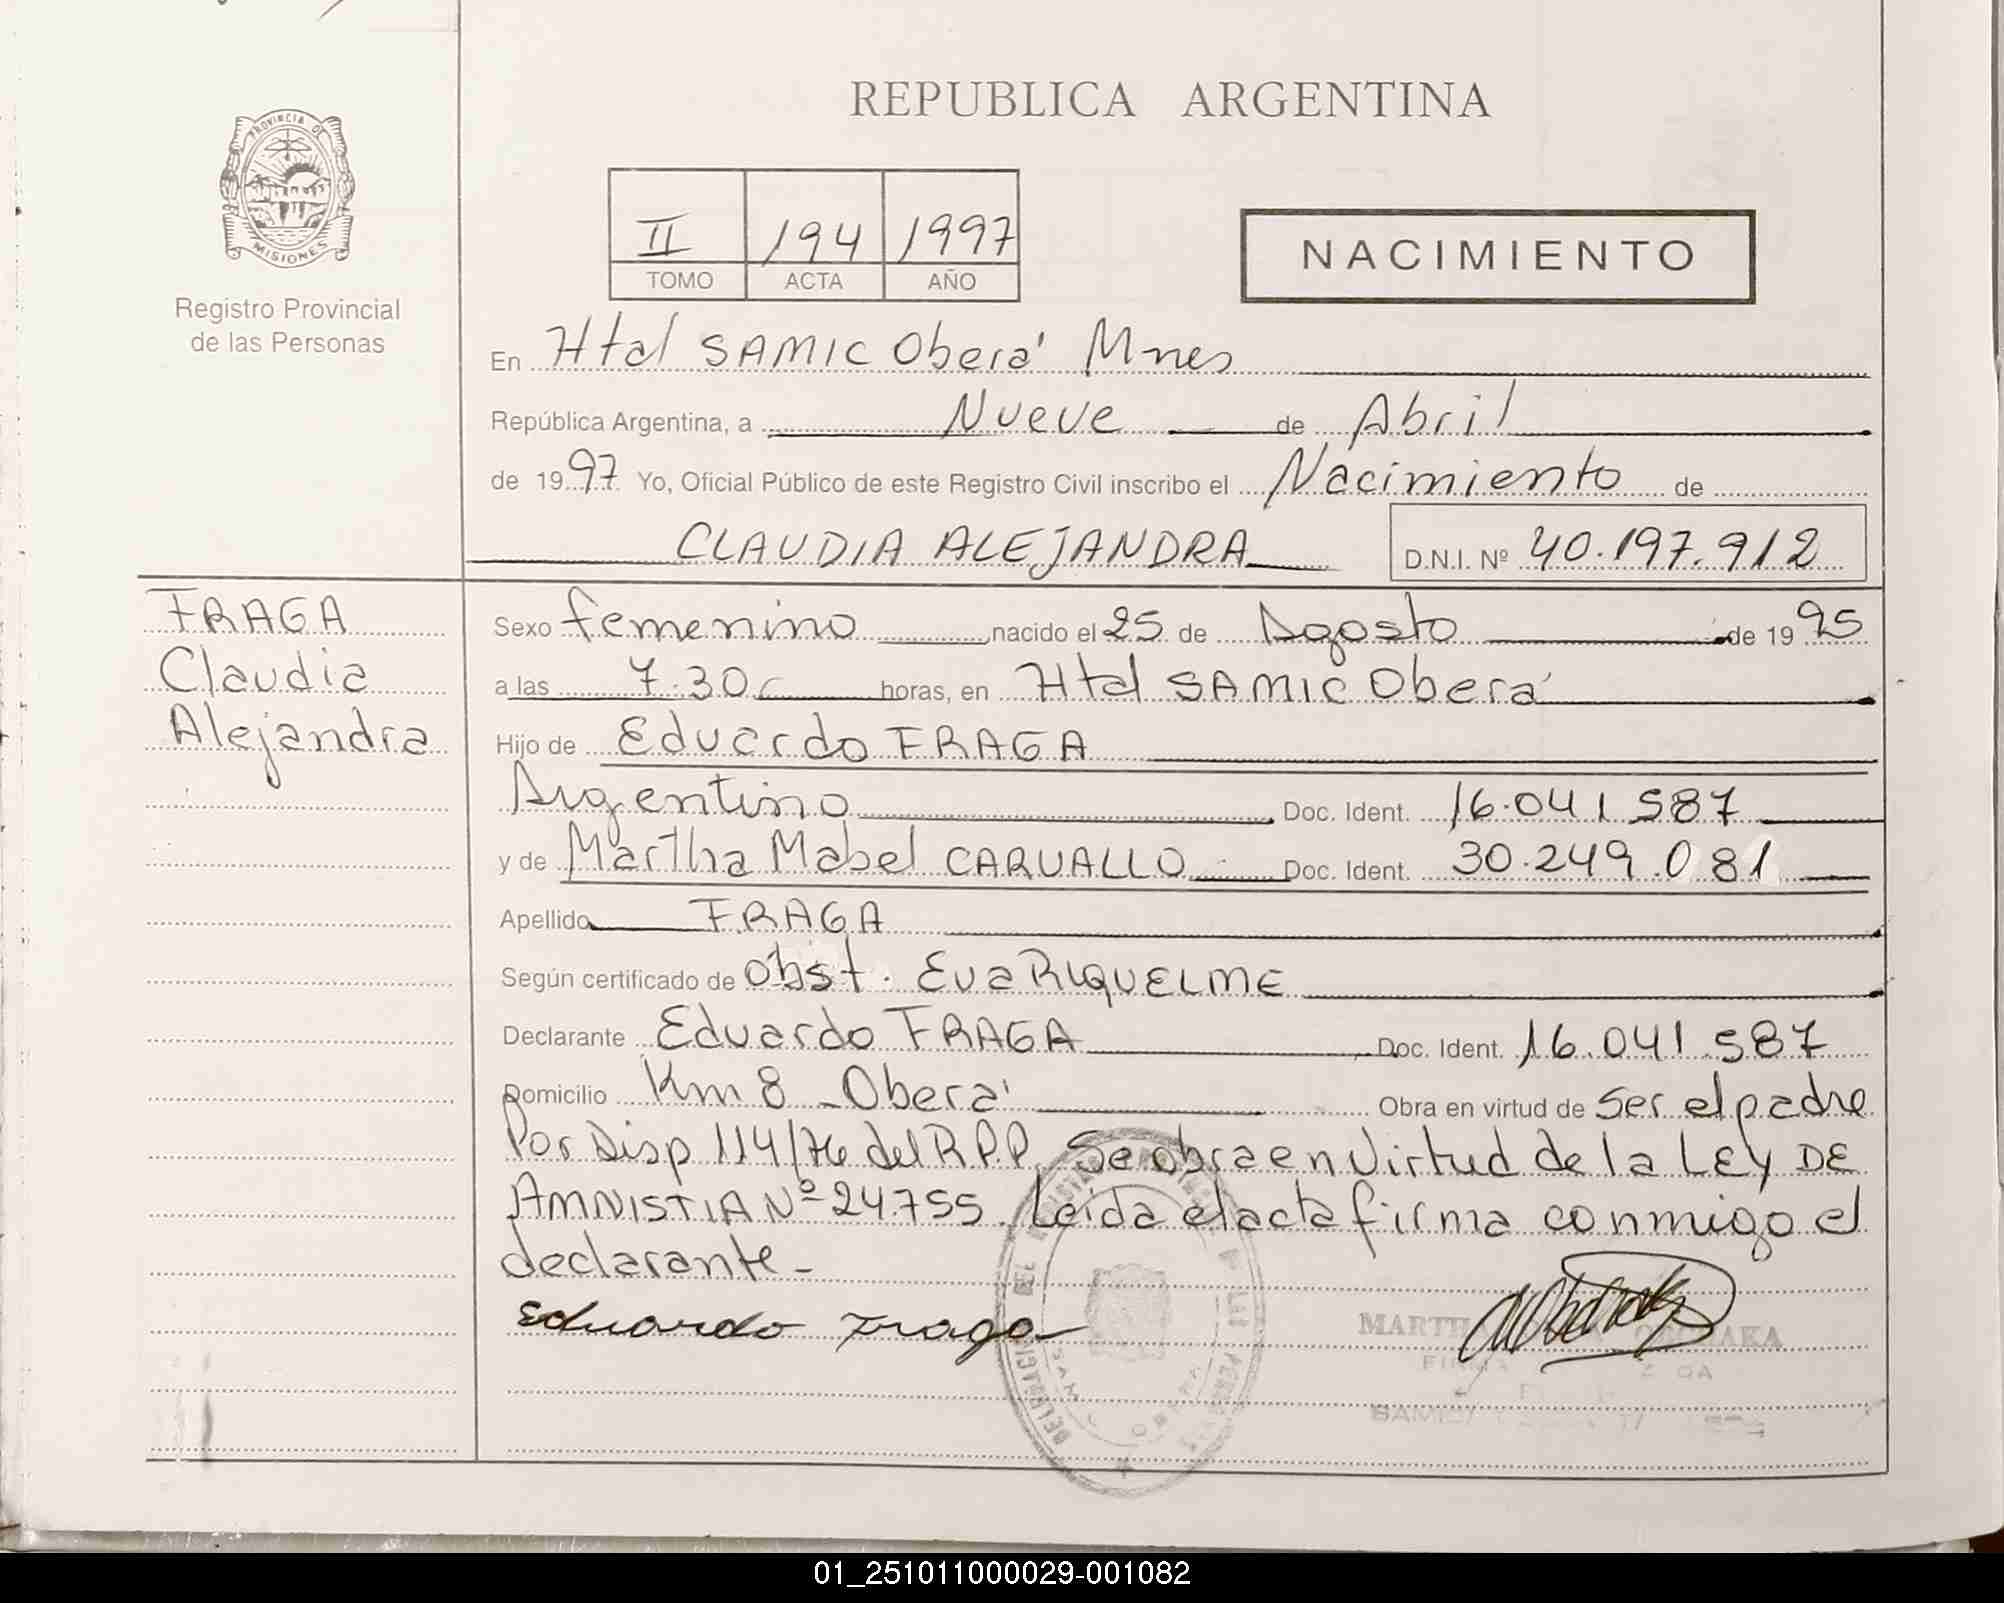 REPUBLICA ARGENTINA
PROVINCIA DE
MISIONES
Registro Provincial
de las Personas
II 194 1997
TOMO ACTA AÑO
NACIMIENTO
En Htal SAMIC Oberá Mnes
República Argentina, a Nueve de Abril
de 1997 Yo, Oficial Público de este Registro Civil inscribo el Nacimiento de
CLAUDIA ALEJANDRA D.N.I. Nº 40.197.912
FRAGA
Claudia
Alejandra
Sexo femenino nacido el 25 de Agosto de 1995
a las 7.30 horas, en Htal SAMIC Oberá
Hijo de Eduardo FRAGA
Argentino Doc. Ident. 16.041.587
y de Martha Mabel CARVALLO Doc. Ident. 30.249.081
Apellido FRAGA
Según certificado de obst. Eva RIQUELME
Declarante Eduardo FRAGA Doc. Ident. 16.041.587
Domicilio Km 8 - Oberá Obra en virtud de ser el padre
Por Disp 114/76 del R.P.P. Se obra en Virtud de la LEY DE
AMNISTIA Nº 24755. Leida el acta firma conmigo el
declarante -
Eduardo Fraga
MARTH
SAMIC
01_251011000029-001082